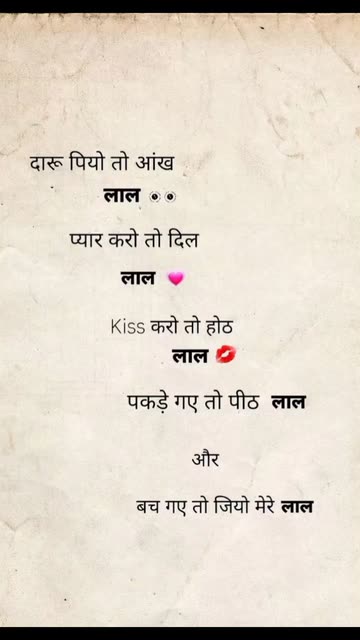 दारू पियो तो आंख
लाल 👀
प्यार करो तो दिल
लाल 💗
Kiss करो तो होठ
लाल 💋
पकड़े गए तो पीठ लाल
और
बच गए तो जियो मेरे लाल